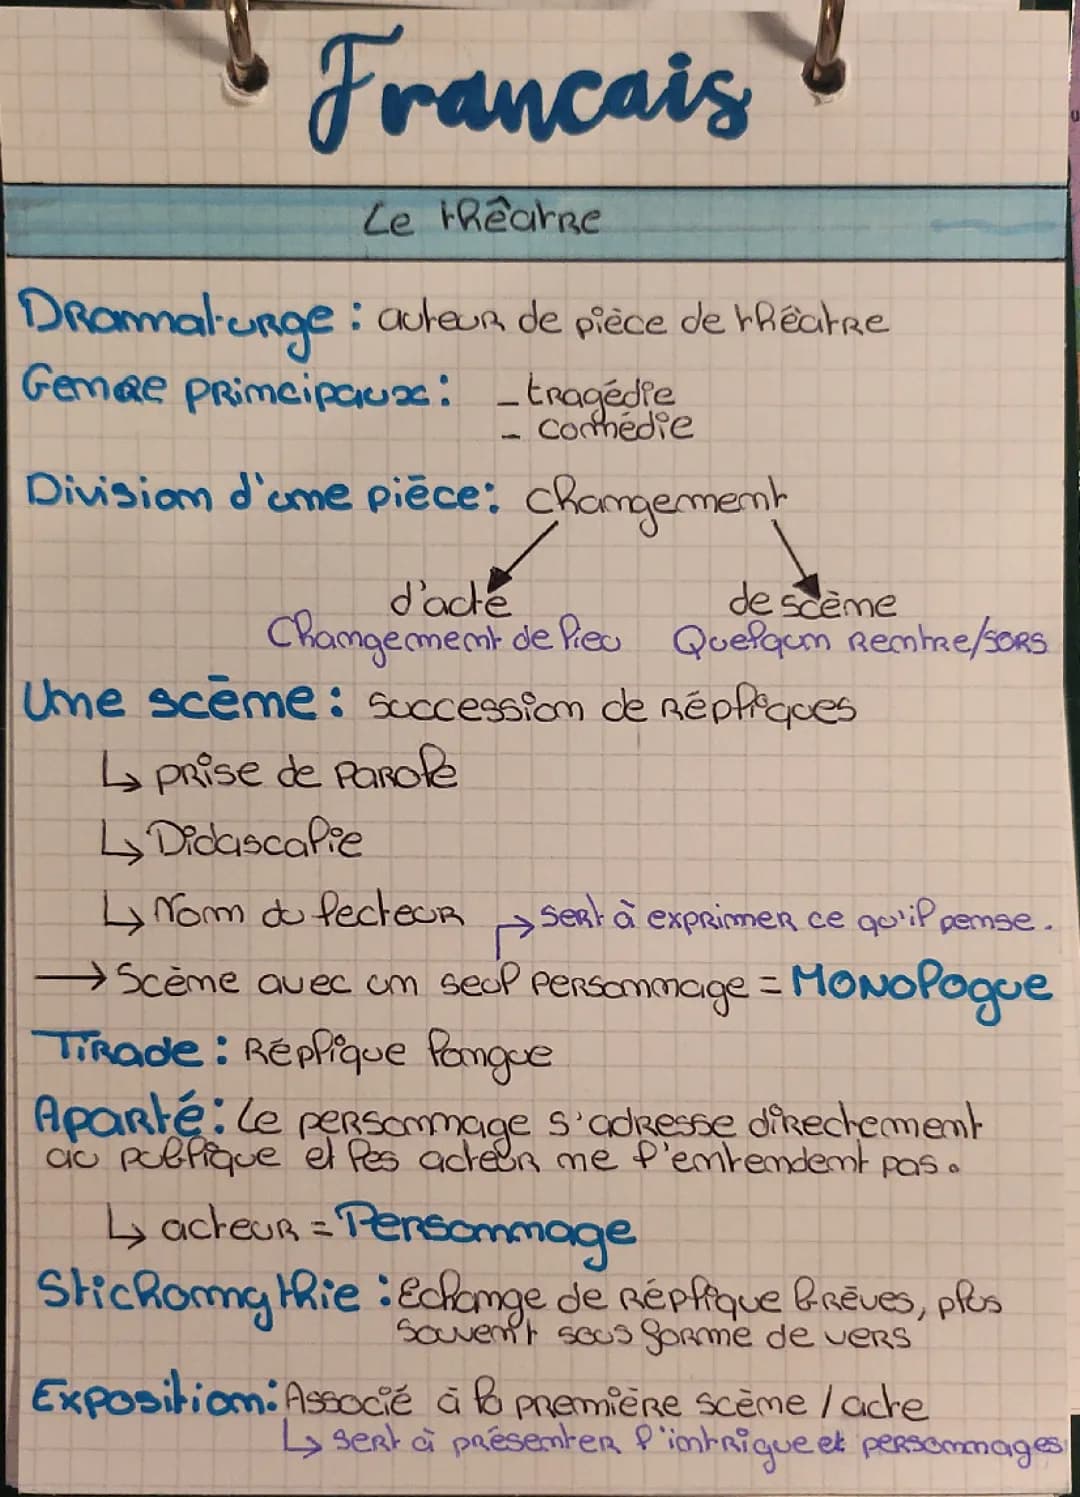 Francais
Le thêatre
Dramaturge : auteur de pièce de thêatre
Genre principaux : - tragédie
- comédie
Division d'une pièce : Changement
d'acte de scène
Changement de lieu Quelqun rentre/sors
Une scène : Succession de répliques
↳ prise de parole
↳ Didascalie
↳ Nom du lecteur → sert à exprimer ce qu'il pense.
→ Scène avec un seul personnage = MONOlogue
Tirade : Réplique longue
Aparté : Le personnage s'adresse directement
au publique et les acteur ne l'entendent pas.
↳ acteur = Personnage
Stichomythie : Echange de réplique brèves, plus
souvent sous forme de vers
Exposition : Associé à la première scène / acte
↳ sert à présenter l'intrigue et personnages